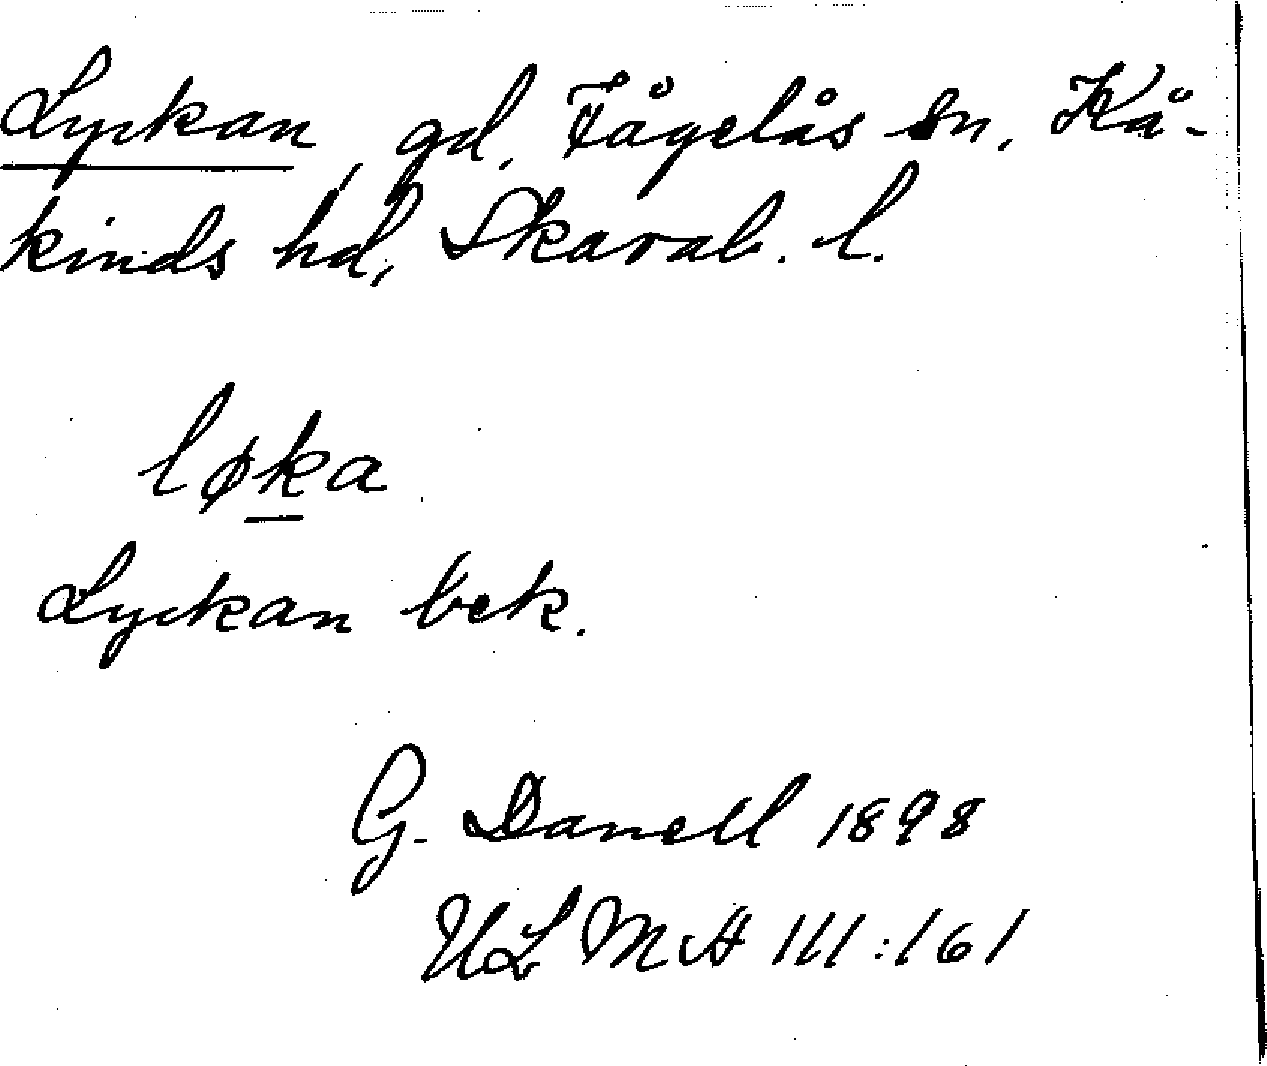 Lyckan, gd, Fågelås sn, Kå-
kinds hd, Skarab. l.
løka
Lyckan bek.
G. Danell 1898
ULMA 111:161